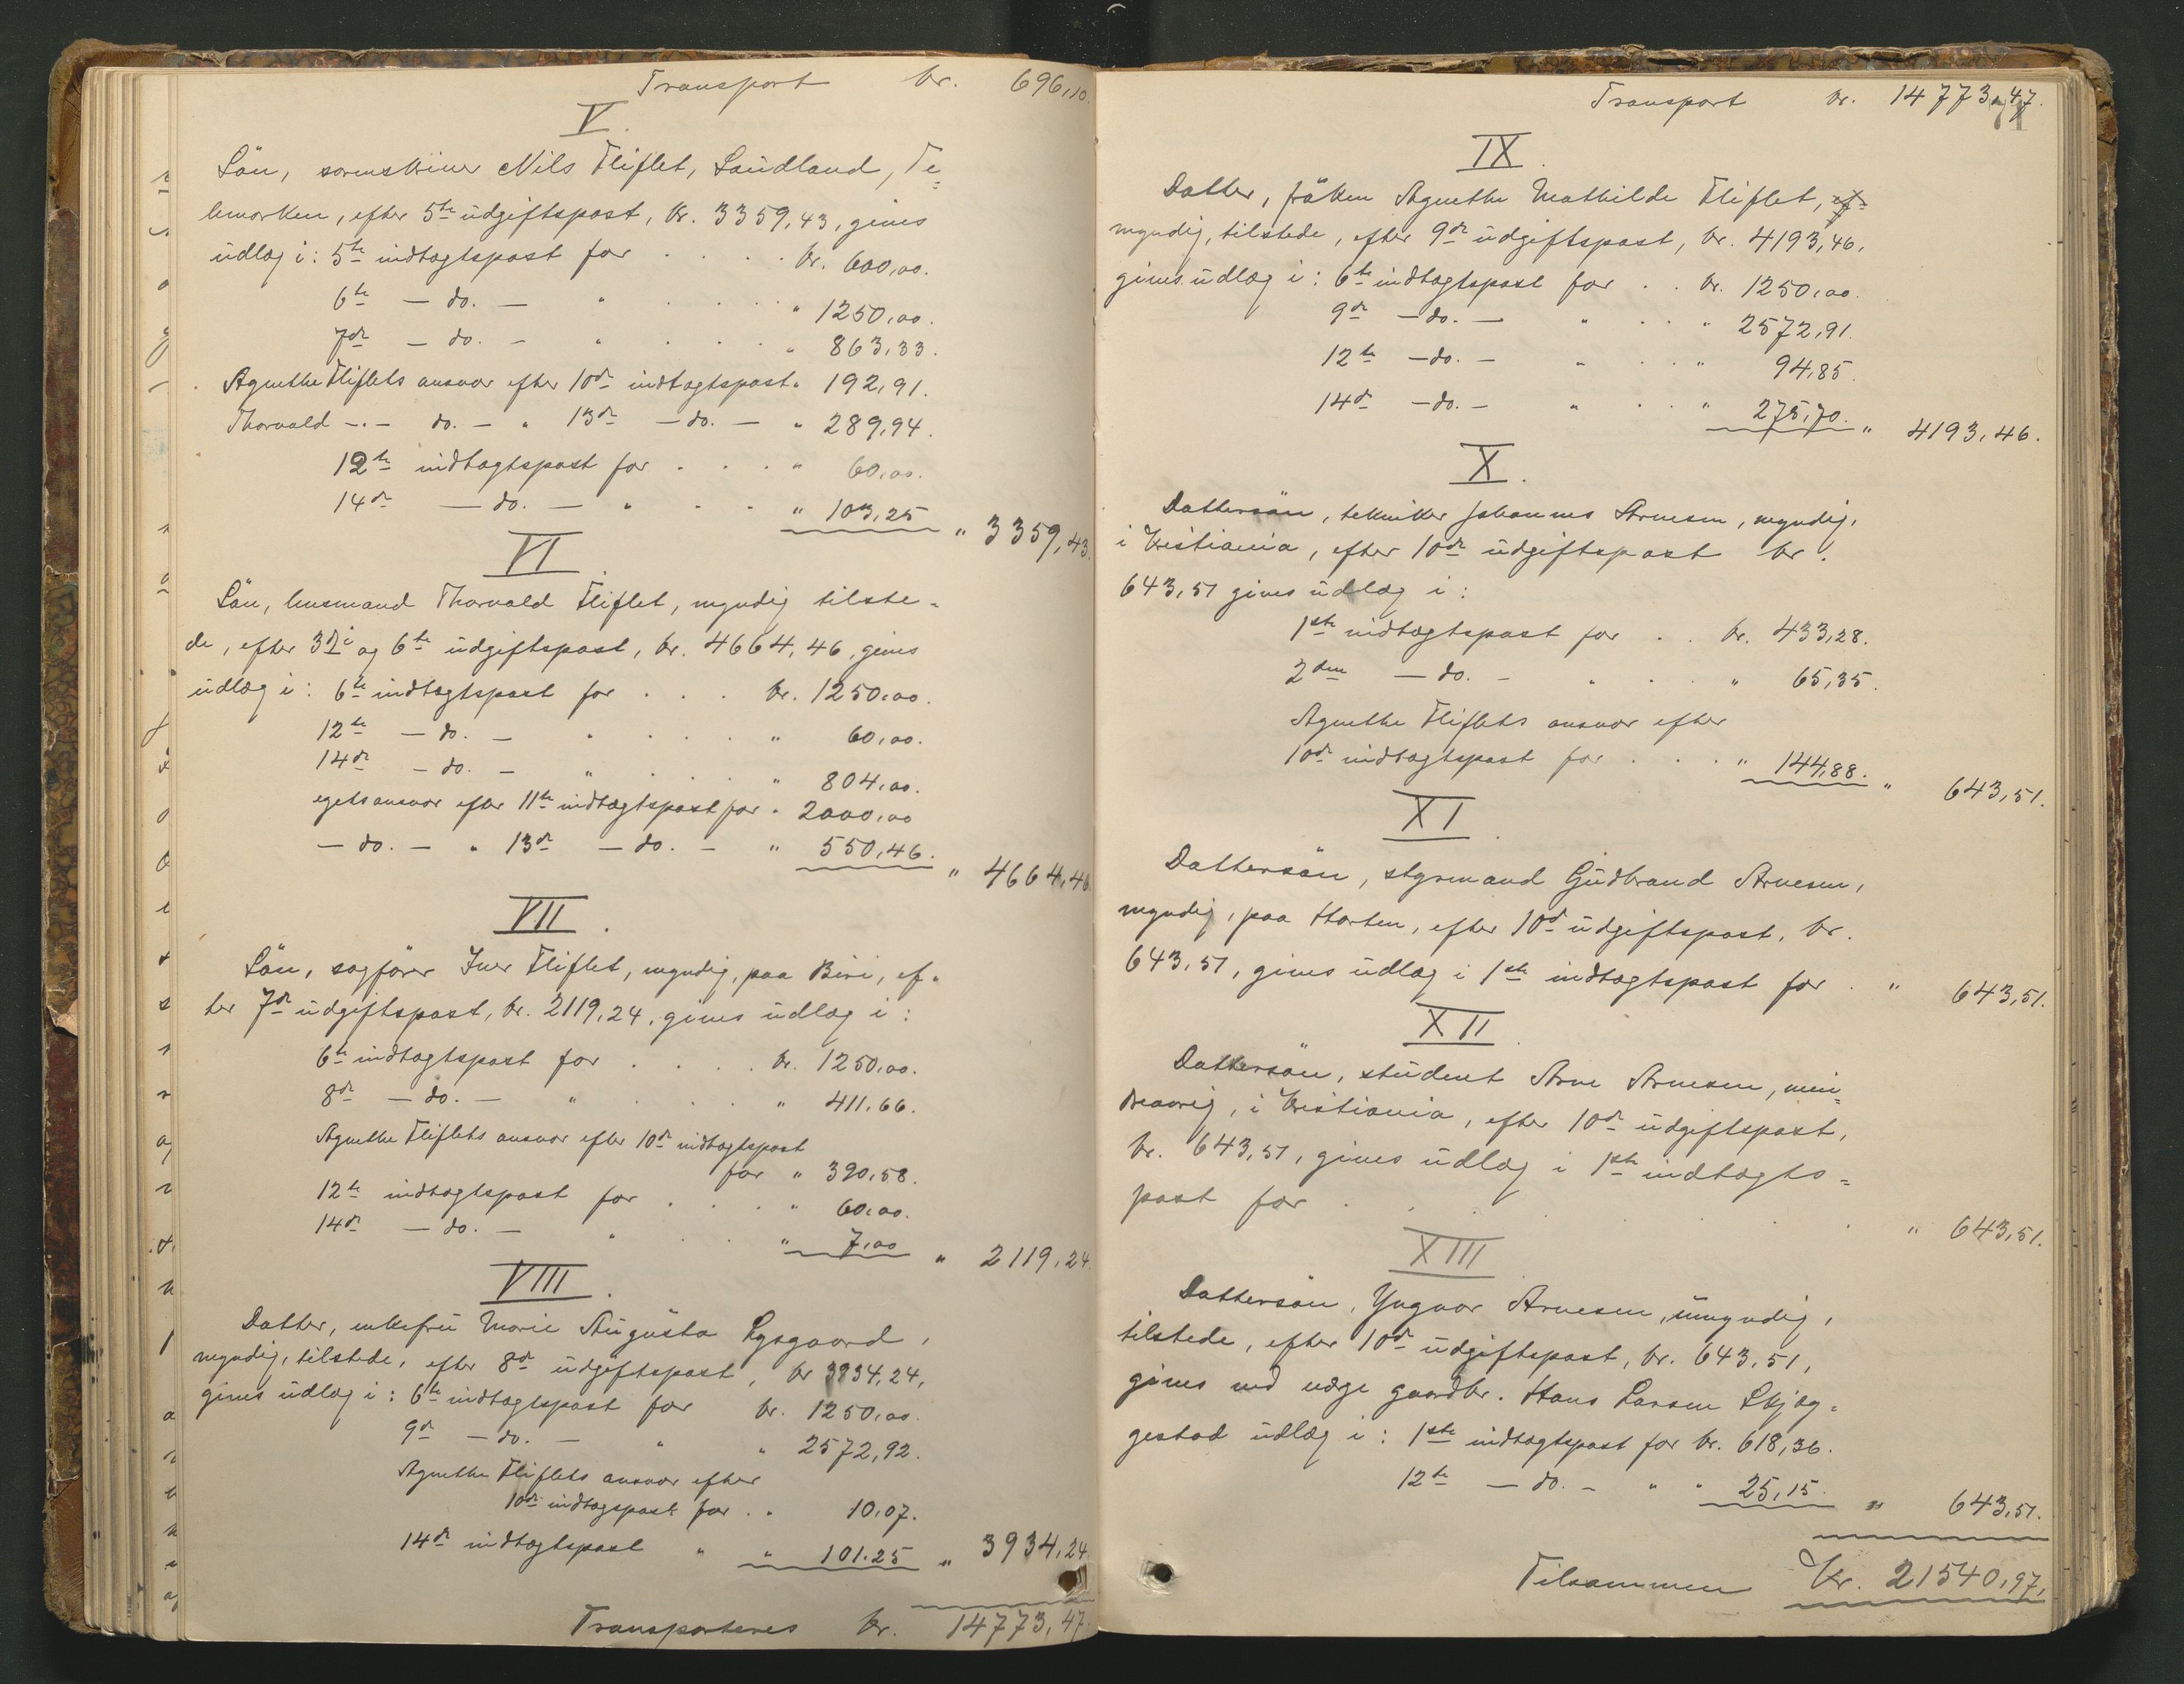 Transport kr. 696,10.
V.
Sön, sorenskriver Nils Fliflet, Laudland, Te=
lemarken, efter 5te udgiftspost, kr. 3359,43, gives
udlæg i: 5te indtægtspost for . . . . kr. 600,00.
6te — do. — " . . . . " 1250,00.
7de — do. — " . . . . " 863,33.
Agnethe Fliflets ansvar efter 10de indtægtspost " 192,91.
Thorvald —"— do. — " 13de — do. — " 289,94.
12te indtægtspost for . . . " 60,00.
14de — do. — " . . . " 103,25 " 3359,43.
VI.
Sön, lensmand Thorvald Fliflet, myndig tilste=
de, efter 3die og 6te udgiftspost, kr. 4664,46, gives
udlæg i: 6te indtægtspost for . . . kr. 1250,00.
12te — do. — " . . . . " 60,00.
14de — do. — " . . . . " 804,00.
eget ansvar efter 11te indtægtspost for " 2000,00
— do. — " 13de — do. — " 550,46. " 4664,46
VII.
Sön, sagförer Iver Fliflet, myndig, paa Biri, ef=
ter 7de udgiftspost, kr. 2119,24, gives udlæg i:
6te indtægtspost for . . . . kr. 1250,00.
8de — do. — " . . . " 411,66.
Agnethe Fliflets ansvar efter 10de indtægtspost
for " 390,58.
12te indtægtspost for . . . . " 60,00.
14de — do. — " . . . " 7,00 " 2119,24.
VIII.
Datter, enkefru Marie Augusta Lysgaard,
myndig, tilstede, efter 8de udgiftspost, kr 3934,24,
gives udlæg i: 6te indtægtspost for kr. 1250,00.
9de — do. — " " 2572,92.
Agnethe Fliflets ansvar efter
10de indtægspost for . " 10,07.
14de indtægtspost " " 101.25 " 3934,24
Transporteres kr. 14773,47.
Transport kr. 14773,47.
71
IX.
Datter, fröken Agnethe Mathilde Fliflet, ef=
myndig, tilstede, efter 9de udgiftspost, kr. 4193,46,
gives udlæg i: 6te indtægtspost for . . kr. 1250,00.
9de — do. — " . . " 2572,91.
12te — do. — " . . " 94,85.
14de — do. — " . . " 275,70. " 4193,46.
X.
Dattersön, tekniker Johannes Arnesen, myndig,
i Kristiania, efter 10de udgiftspost kr.
643,51 gives udlæg i:
1ste indtægtspost for . . kr. 433,28.
2den — do. — " . . " 65,35.
Agnethe Fliflets ansvar efter
10de indtægtspost for . . . " 144,88. " 643,51.
XI.
Dattersön, styrmand Gudbrand Arnesen,
myndig, paa Horten, efter 10de udgiftspost, kr.
643,51, gives udlæg i 1ste indtægtspost for . " 643,51.
XII.
Dattersön, student Arne Arnesen, min=
dreaarig, i Kristiania, efter 10de udgiftspost,
kr. 643,51, gives udlæg i 1ste indtægts=
post for . . . . . . " 643,51.
XIII
Dattersön, Yngvar Arnesen, umyndig,
tilstede, efter 10de udgiftspost, kr. 643,51,
gives ved værge gaardbr. Hans Larsen Skjæg=
gestad udlæg i: 1ste indtægtspost for kr. 618,36.
12te — do. — " " 25,15. " 643,51.
Tilsammen Kr. 21540,97.